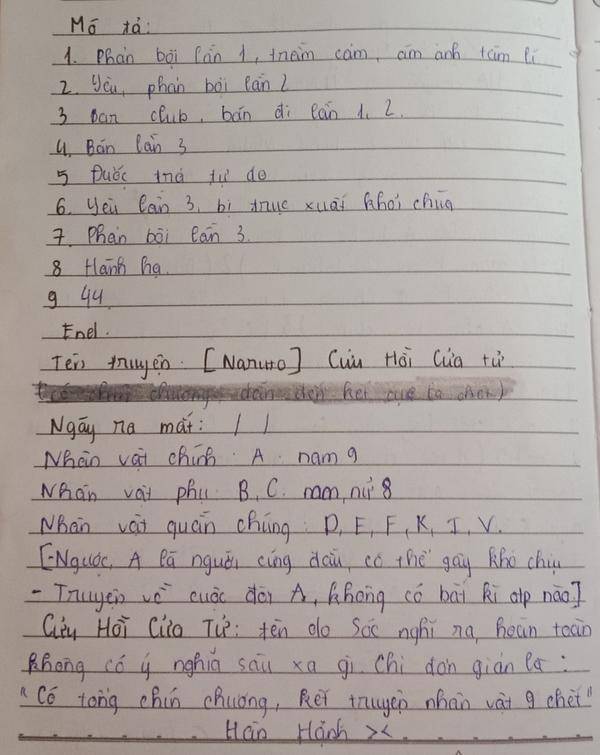 Mô tả:
1. Phản bội lần 1, trầm cảm, ám ảnh tâm lí
2. Yêu, phản bội lần 2
3 Bar club, bán đi lần 1, 2.
4. Bán lần 3
5 Được trả tự do
6. Yêu lần 3, bị trục xuất khỏi chùa
7. Phản bội lần 3.
8 Hành hạ.
9 44.
End.
Tên truyện: [Naruto] Cửu Hồi Cửa tử
chương, dẫn đến kết cục là chết)
Ngày ra mắt: / /
Nhân vật chính: A. nam 9
Nhân vật phụ: B, C. nam, nữ 8
Nhân vật quần chúng: D, E, F, K, I, V.
[-Ngược, A là người cứng đầu, có thể gây khó chịu
- Truyện về cuộc đời A, không có bất kì otp nào.]
Cửu Hồi Cửa Tử: tên do Sóc nghĩ ra, hoàn toàn
không có ý nghĩa sâu xa gì. Chỉ đơn giản là:
"Có tổng chín chương, kết truyện nhân vật 9 chết"
Hân Hạnh ><.